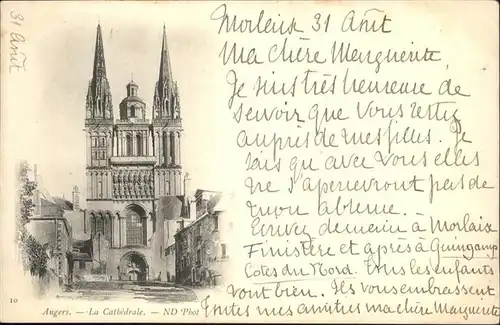 31 Août
Morlaix 31 Août
Ma chère Marguerite
Je suis très heureuse de
savoir que vous restez
auprès de mes filles. Je
sais qu'avec vous elles
ne s'apercevront pas de
mon absence.
Ecrivez demain à Morlaix
Finistère et après à Guingamp
Côtes du Nord. Tous les enfants
vont bien. Ils vous embrassent
Toutes mes amitiés ma chère Marguerite
10
Angers. — La Cathédrale. — ND Phot